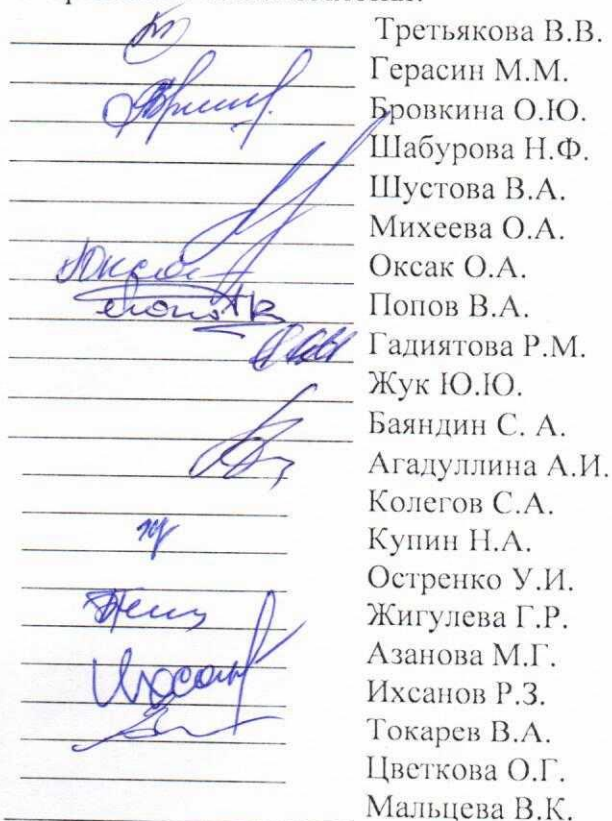 Третьякова В.В.
Герасин М.М.
Бровкина О.Ю.
Шабурова Н.Ф.
Шустова В.А.
Михеева О.А.
Оксак О.А.
Попов В.А.
Гадиятова Р.М.
Жук Ю.Ю.
Баяндин С. А.
Агадуллина А.И.
Колегов С.А.
Купин Н.А.
Остренко У.И.
Жигулева Г.Р.
Азанова М.Г.
Ихсанов Р.З.
Токарев В.А.
Цветкова О.Г.
Мальцева В.К.